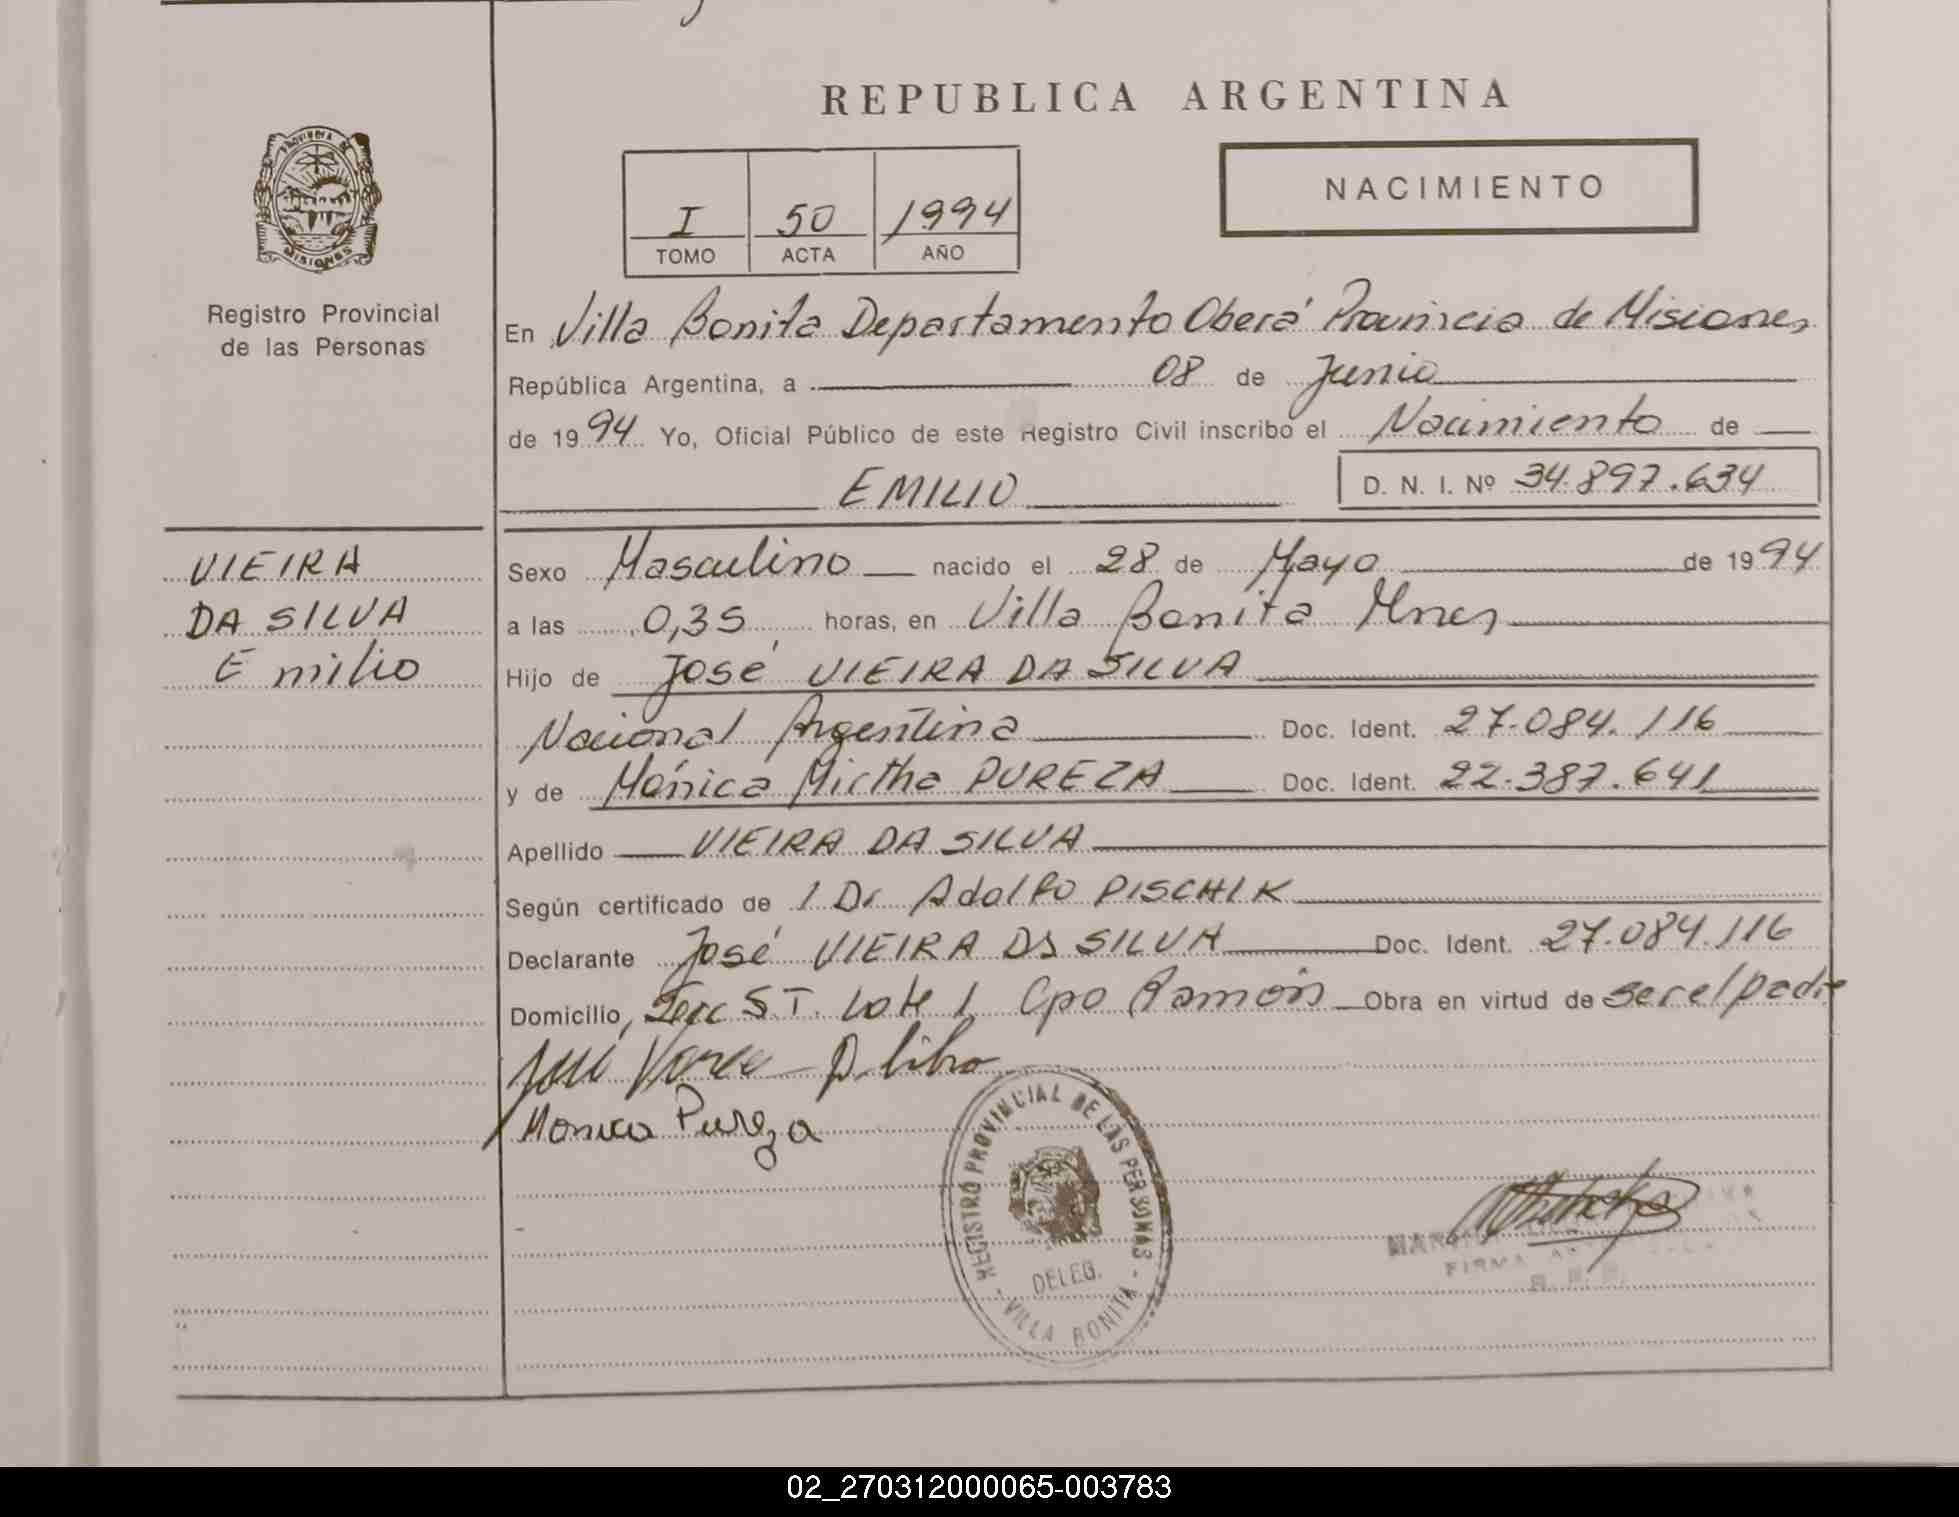 REPUBLICA ARGENTINA
PROVINCIA DE
MISIONES
Registro Provincial
de las Personas
I 50 1994
TOMO ACTA AÑO
NACIMIENTO
En Villa Bonita Departamento Oberá Provincia de Misiones
República Argentina, a 08 de Junio
de 1994 Yo, Oficial Público de este Registro Civil inscribo el Nacimiento de
EMILIO D. N. I. Nº 34.897.634
VIEIRA
DA SILVA
Emilio
Sexo Masculino nacido el 28 de Mayo de 1994
a las 0,35 horas, en Villa Bonita Mnes
Hijo de José VIEIRA DA SILVA
Nacional Argentina Doc. Ident. 27.084.116
y de Mónica Mirtha PUREZA Doc. Ident. 22.387.641
Apellido VIEIRA DA SILVA
Según certificado de 1 Dr Adolfo PISCHIK
Declarante José VIEIRA DA SILVA Doc. Ident. 27.084.116
Domicilio, Secc ST. Lote 1 Cpo Ramón Obra en virtud de ser el padre
Monica Pureza
REGISTRO PROVINCIAL DE LAS PERSONAS
DELEG.
- VILLA BONITA -
FIRMA
02_270312000065-003783